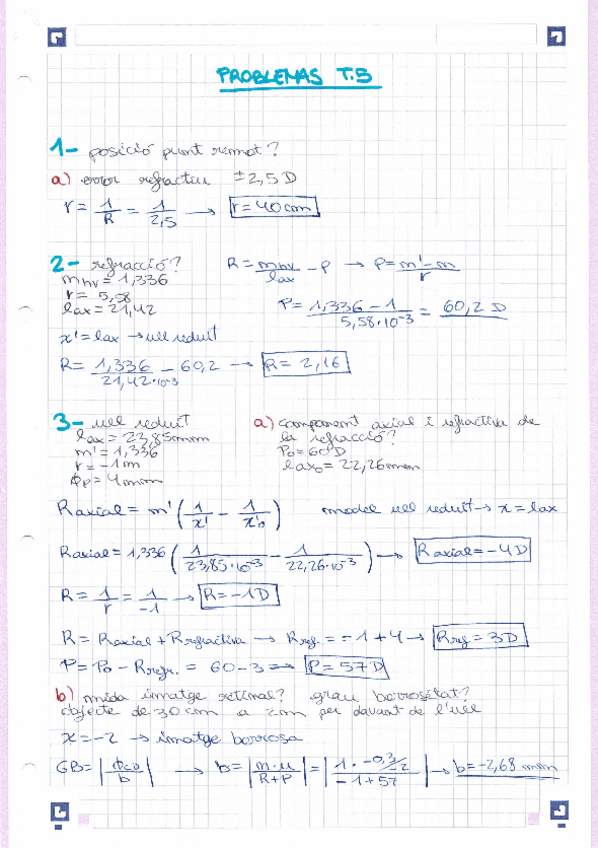 PROBLEMAS T.3
1- posició punt remot?
a) error refractiu ±2,5 D
r = 1/R = 1/2,5 → r = 40 cm
2- refracció?
mhv = 1,336
r = 5,58
lax = 21,42
x' = lax → ull reduït
R = mhv/lax - P → P = m'-m/r
P = 1,336 - 1/5,58·10⁻³ = 60,2 D
R = 1,336/21,42·10⁻³ - 60,2 → R = 2,16
3- ull reduït
lax = 23,85mm
m' = 1,336
r = -1m
ϕp = 4mm
a) component axial i refractiva de
la refracció?
P₀ = 60 D
lax₀ = 22,26mm
Raxial = m' (1/x' - 1/x'₀) model ull reduït → x = lax
Raxial = 1,336 (1/23,85·10⁻³ - 1/22,26·10⁻³) → Raxial = -4D
R = 1/r = 1/-1 → R = -1D
R = Raxial + Rrefractiva → Rref. = -1+4 → Rref = 3D
P = P₀ - Rrefr. = 60-3 ⇒ P = 57D
b) mida imatge retinal? grau borrositat?
objecte de 30 cm a 2m per davant de l'ull
x = -2 → imatge borrosa
GB = |ϕcD/b| → b = |m·u/R+P| = |1·-0,3/2/-1+57| → b = -2,68 mm